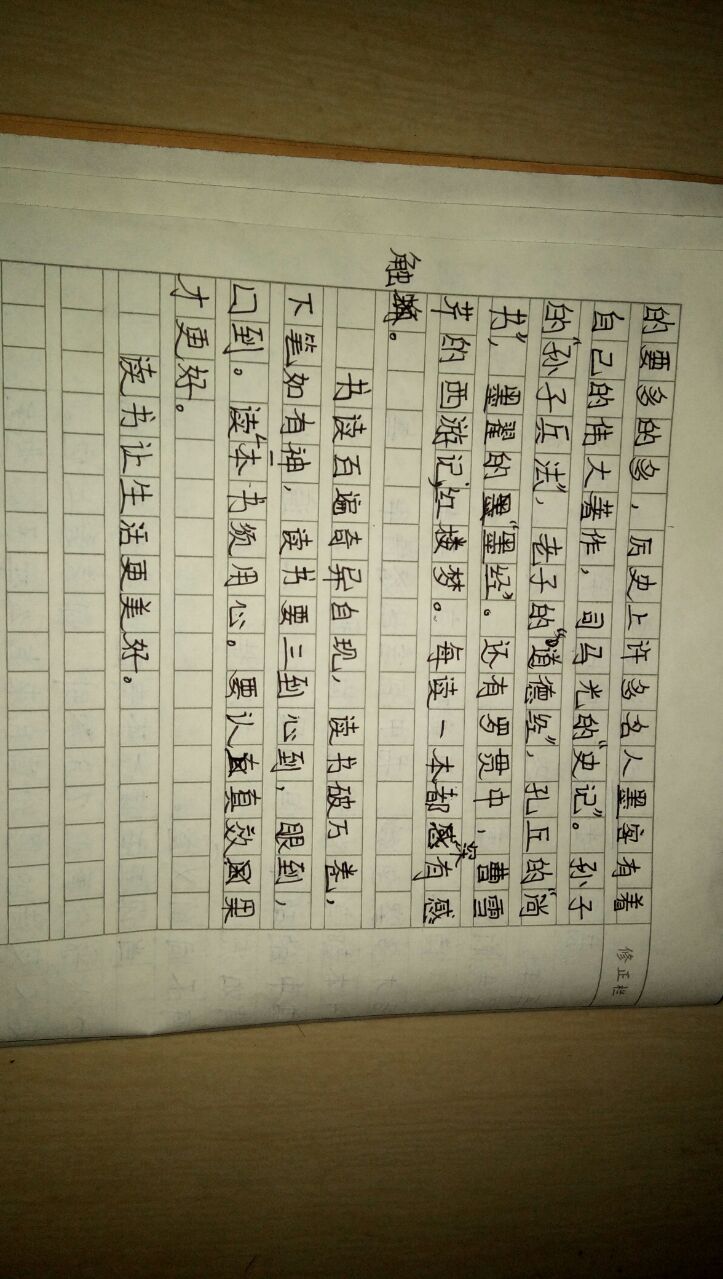 修正栏
的要多的多，历史上许多名人墨客有着
自己的伟大著作，司马光的“史记”。孙子
的“孙子兵法”，老子的“道德经”，孔丘的“尚
书”，墨翟的“墨经”。还有罗贯中，曹雪
芹的西游记，红楼梦。每读一本都深有感
触。
书读百遍奇异自现，读书破万卷，
下笔如有神，读书要三到心到，眼到，
口到。读一本书须用心。要认真效果
才更好。
读书让生活更美好。